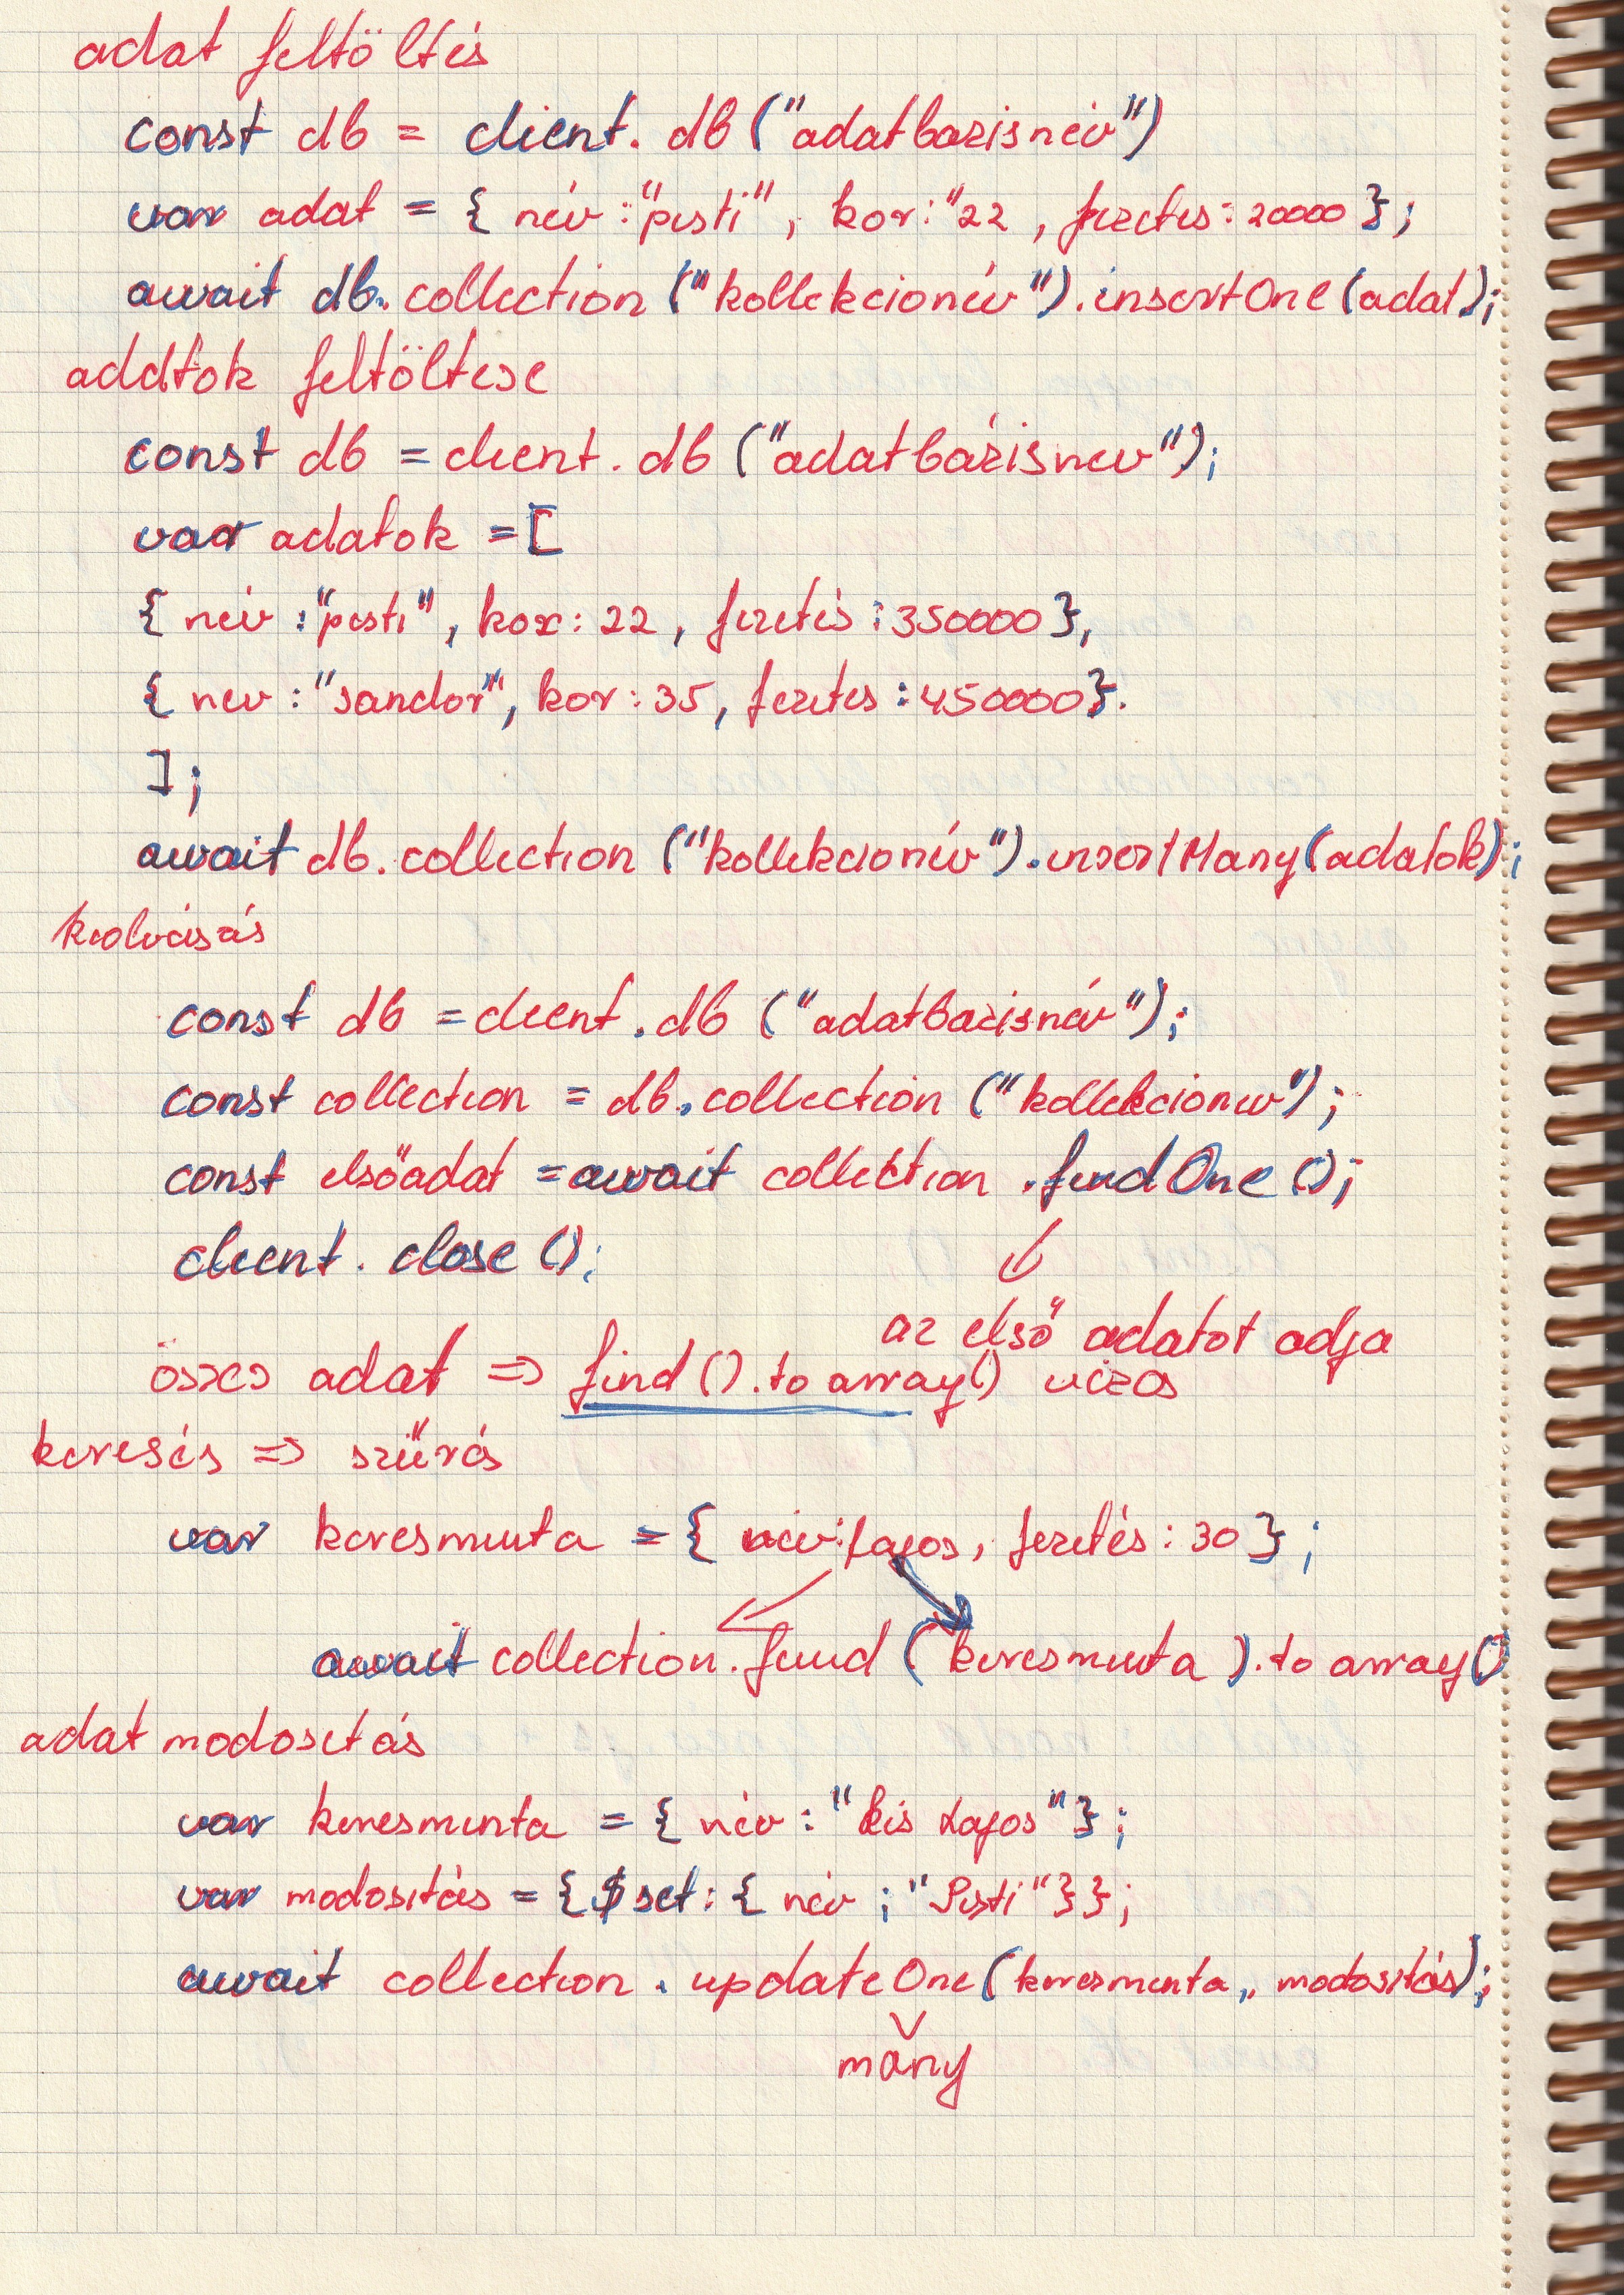 adat feltöltés
const db = client. db ("adatbazisnév")
var adat = { név : "pisti" , kor: "22 , fizetes: 20000 };
await db. collection ("kollekcionév"). insertOne (adat);
addtok feltöltese
const db = client. db ("adatbázisnev");
var adatok = [
{ név : "pisti" , kor: 22 , fizetés : 350000 },
{ nev : "sandor" , kor: 35, fizetes : 450000 }.
];
await db. collection ("kollekcionév"). insertMany (adatok);
kiolvásás
const db = client. db ("adatbazisnév");
const collection = db. collection ("kollekcionev");
const elsőadat = await collection . findOne ();
client. close ();
az első adatot adja
összes adat => find (). to array() vissza
keresés => szűrés
var keresminta = { név: Lajos, fizetés: 30 } ;
await collection. find ( keresminta ). to array()
adat modositás
var keresminta = { név : "kis Lajos" } ;
var modositás = {$set: { név ; "Pisti" }};
await collection . updateOne (keresminta ,, modositás);
many